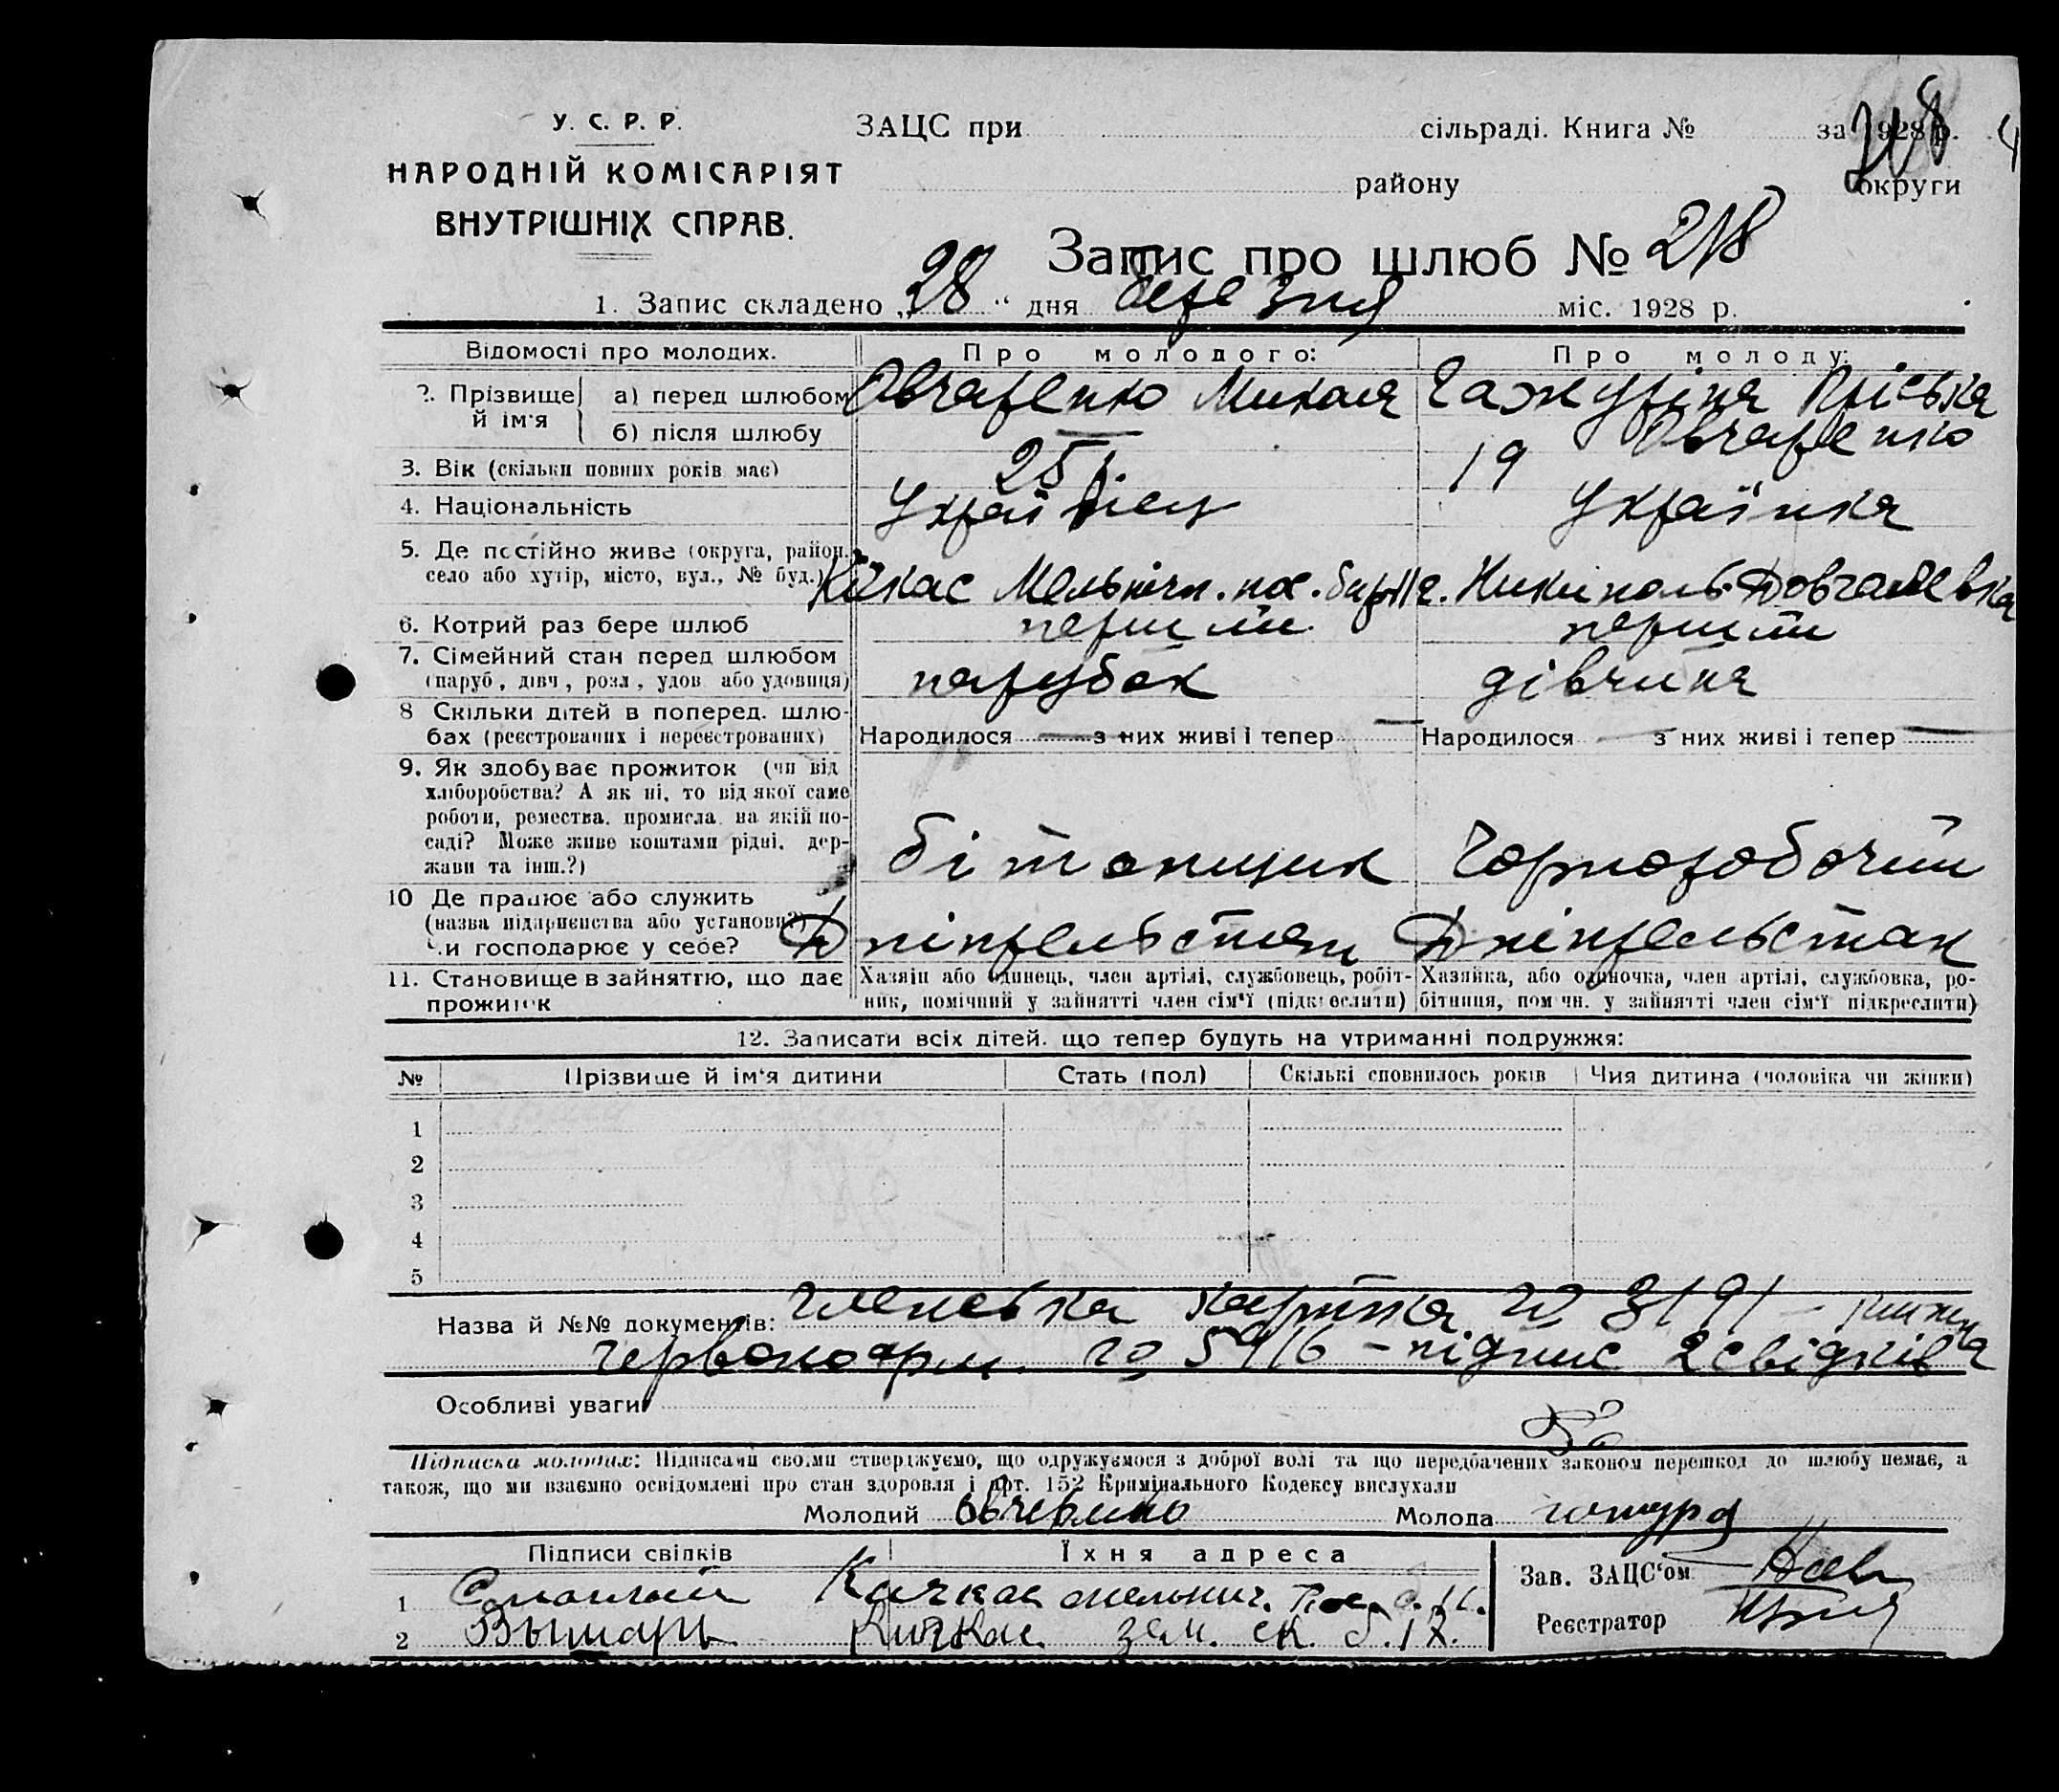 У. С. Р. Р.
НАРОДНІЙ КОМІСАРІЯТ
ВНУТРІШНІХ СПРАВ.
ЗАЦС при сільраді. Книга № за 1928 р.
218
району округи
Запис про шлюб № 218
1. Запис складено „28“ дня березня міс. 1928 р.
Відомості про молодих. Про молодого: Про молоду:
2. Прізвище й ім'я
а) перед шлюбом Овчаренко Микола Гажуріна Пріська
б) після шлюбу — Овчаренко
3. Вік (скільки повних років має) 25 р. 19
4. Національність Українец Українка
5. Де постійно живе (округа, район, село або хутір, місто, вул., № буд.) Кічкас Мельнічн. пос. Нікіполь
6. Котрий раз бере шлюб перший перший
7. Сімейний стан перед шлюбом
(паруб, дівч, розл, удов або удовиця) парубок дівчина
8 Скільки дітей в поперед. шлю-
бах (реєстрованих і нереєстрованих) Народилося — з них живі і тепер — Народилося — з них живі і тепер —
9. Як здобуває прожиток (чи від
хліборобства? А як ні, то від якої саме
роботи, ремества, промисла, на якій по-
саді? Може живе коштами рідні, дер-
жави та інш.?) бітонщик Чорноробочий
10 Де працює або служить
(назва підприємства або установи?)
Чи господарює у себе? Дніпрельстан Дніпрельстан
11. Становище в зайняттю, що дає
прожиток
Хазяїн або одинець, член артілі, службовець, робіт-
ник, помічний у зайнятті член сім'ї (підкреслити)
Хазяйка, або одиночка, член артілі, службовка, ро-
бітниця, пом чн. у зайнятті член сім'ї підкреслити)
12. Записати всіх дітей, що тепер будуть на утриманні подружжя:
№ Прізвище й ім'я дитини Стать (пол) Скількі сповнилось років Чия дитина (чоловіка чи жінки)
1
2
3
4
5
Назва й №№ документів: членська картка № 3191 – книжка
червоноарм. № 5916 – підпис 2 свідків
Особливі уваги
Підписка молодих: Підписами своїми стверджуємо, що одружуємося з доброї волі та що передбачених законом перешкод до шлюбу немає, а
також, що ми взаємно освідомлені про стан здоровля і арт. 152 Кримінального Кодексу вислухали
Молодий Молода
Підписи свідків Їхня адреса
1 Кичкас мельнич. пос.
2 Вымарь Кичкас
Зав. ЗАЦС'ом
Реєстратор